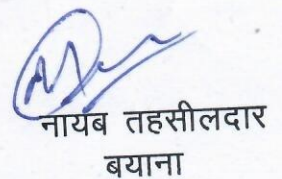 नायब तहसीलदार
बयाना